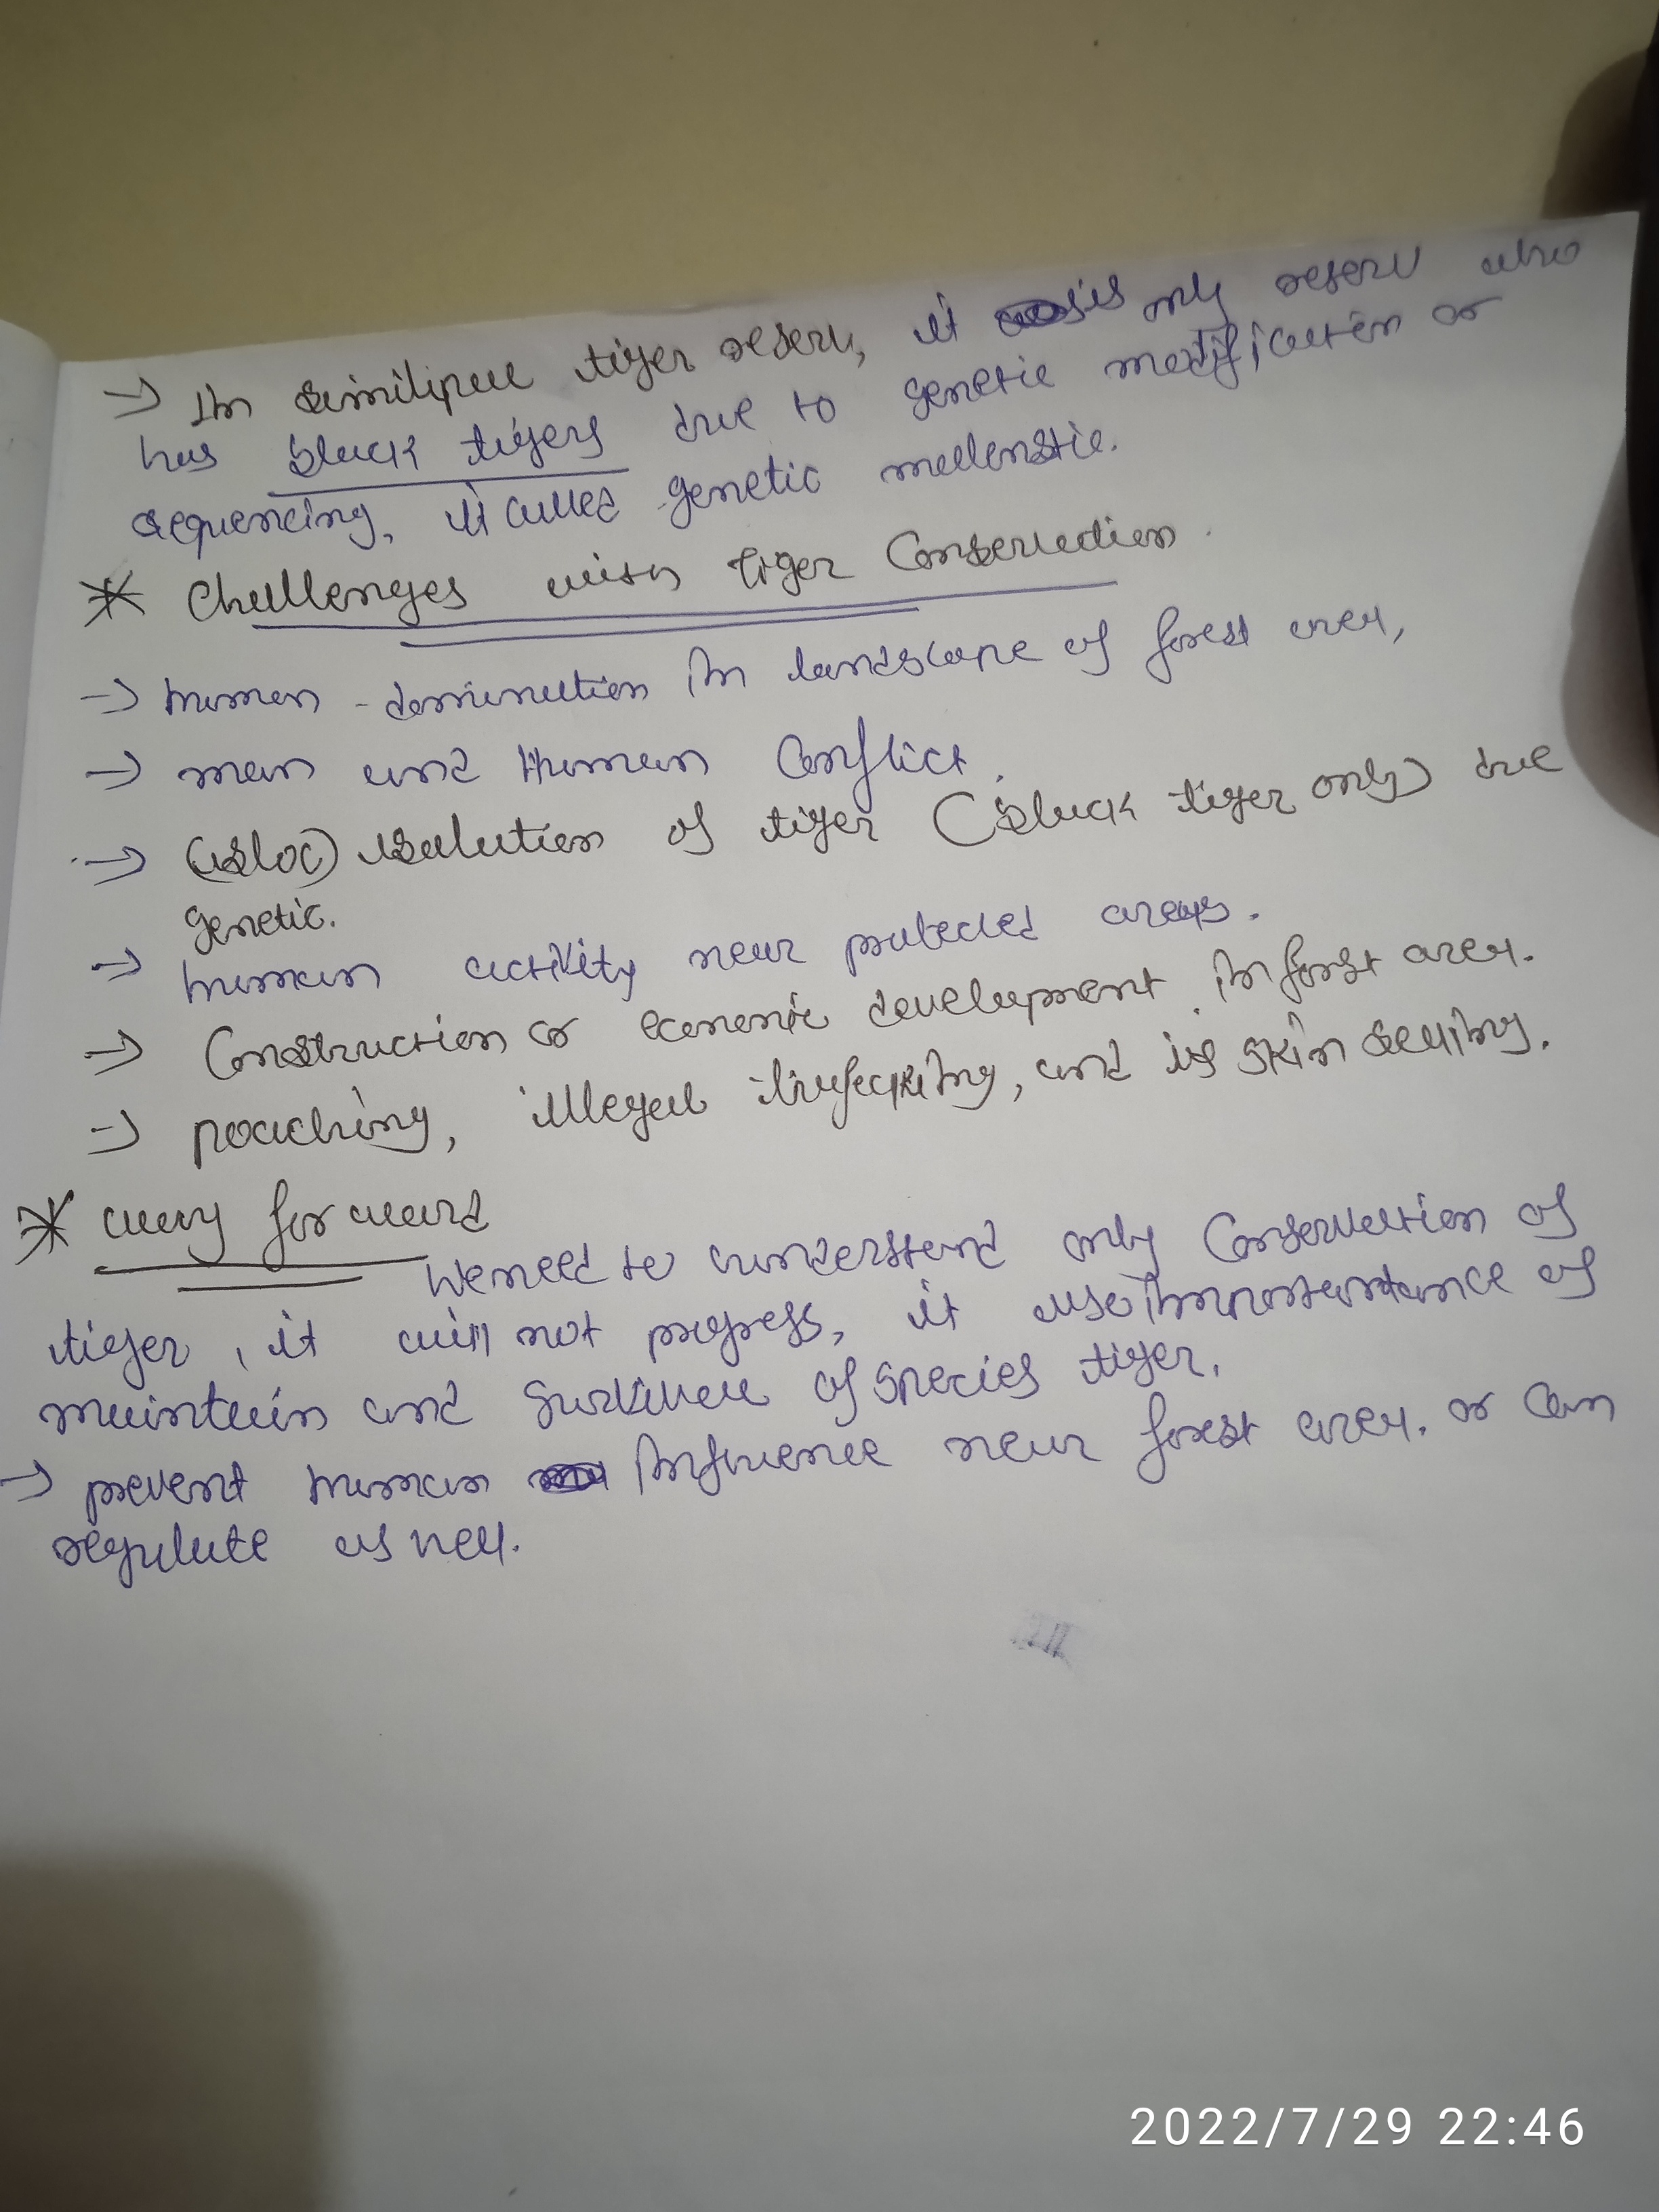 → In similipal tiger reserv, it is only reserv who
has black tigers due to genetic modification or
sequencing, it called genetic mellenstic.
* Challenges with tiger Conservation.
→ human-domination in landscape of forest area,
→ man and Human Conflict.
→ isolation of tiger (black tiger only) due
genetic.
→ human activity near protected areas.
→ Construction or economic development in forst area.
→ poaching, illegal trafecking, and its skin selling.
* way forward
We need to understand only Conservation of
tiger, it will not progress, it also importantance of
maintain and survival of species tiger.
→ prevent human influence near forest area. or can
regulate as well.
2022/7/29 22:46